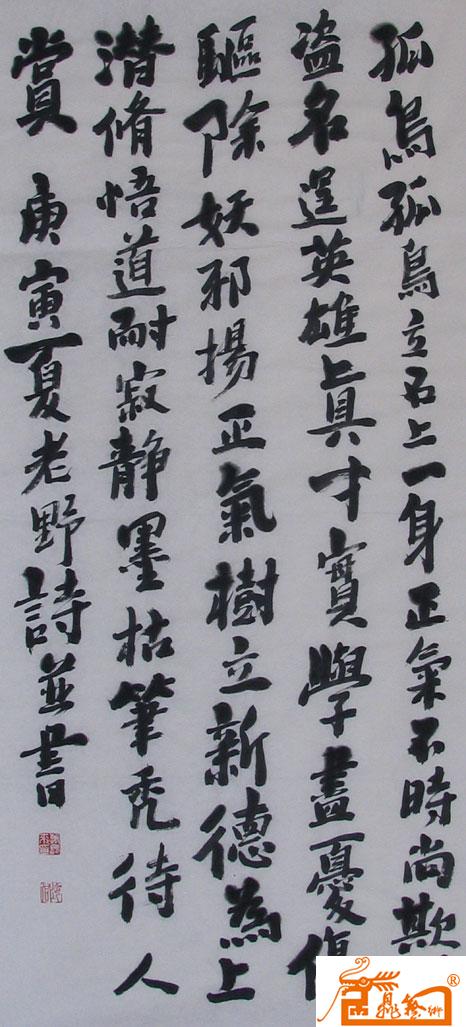 孤鳥孤鳥立石上一身正氣不時尚欺
盜名逞英雄眞才實學盡憂傷
驅除妖邪揚正氣樹立新德為上
潜脩悟道耐寂靜墨枯筆禿待人
賞 庚寅夏老野詩並書